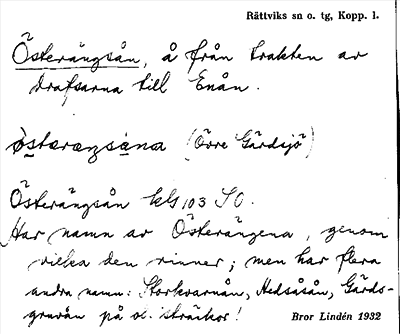 Rättviks sn o. tg, Kopp. l.
Österängsån, å från trakten av
Drafsarna till Enån.
(Övre Gärdsjö)
Österängsån kbl 103 SO.
Har namn av Österängena, genom
vilka den rinner; men har flera
andra namn: Storkvarnån, Hedsåsån, Gärds-
gruvån på ol. sträckor!
Bror Lindén 1932